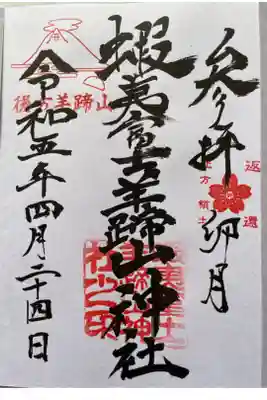 参拝 卯月
返還
北方領土
蝦夷富士羊蹄山神社
後方羊蹄山
令和五年四月二十四日